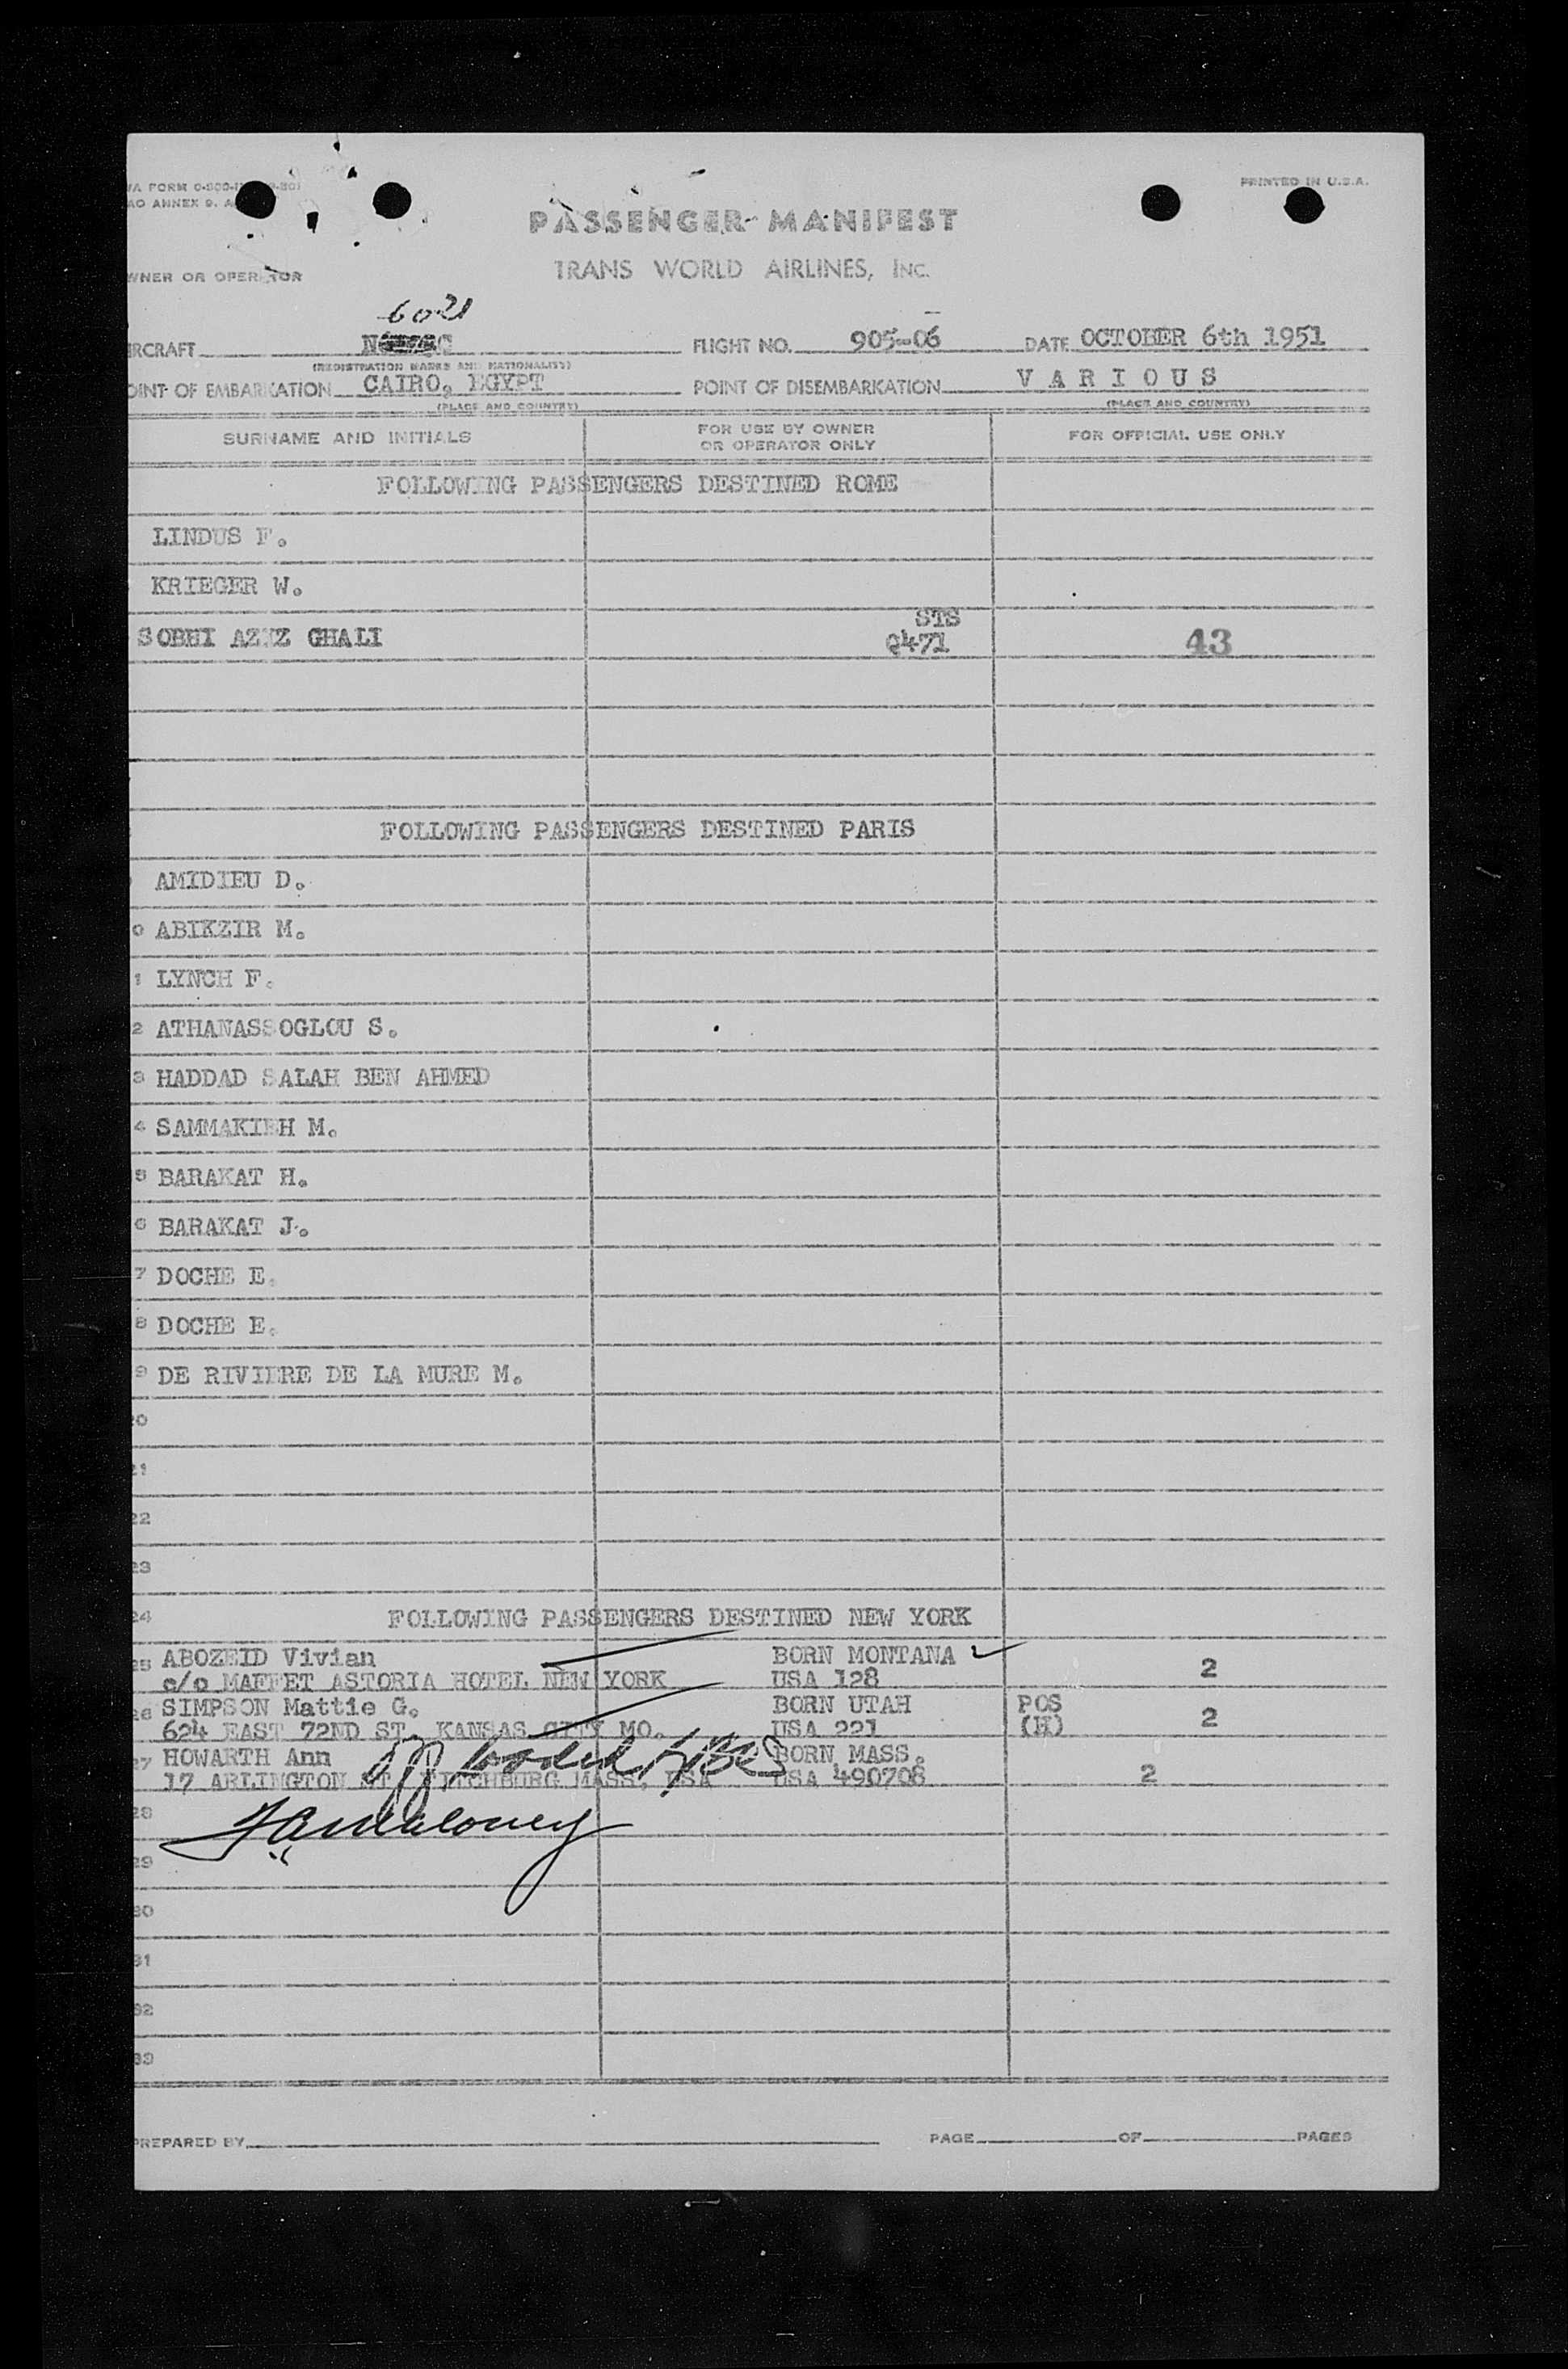 PRINTED IN U.S.A.
AO ANNEX 9.
PASSENGER MANIFEST
WNER OR OPERATOR
TRANS WORLD AIRLINES, INC.
6021
IRCRAFT FLIGHT NO. 905-06 DATE OCTOBER 6th 1951
(REGISTRATION MARKS AND NATIONALITY)
OINT OF EMBARKATION CAIRO, EGYPT POINT OF DISEMBARKATION VARIOUS
(PLACE AND COUNTRY) (PLACE AND COUNTRY)
SURNAME AND INITIALS FOR USE BY OWNER OR OPERATOR ONLY FOR OFFICIAL USE ONLY
FOLLOWING PASSENGERS DESTINED ROME
LINDUS F.
KRIEGER W.
STS
SOBHI AZIZ GHALI 2471 43
FOLLOWING PASSENGERS DESTINED PARIS
AMIDIEU D.
0 ABIKZIR M.
1 LYNCH F.
2 ATHANASSOGLOU S.
3 HADDAD SALAH BEN AHMED
4 SAMMAKIEH M.
5 BARAKAT H.
6 BARAKAT J.
7 DOCHE E.
8 DOCHE E.
9 DE RIVIERE DE LA MURE M.
20
21
22
23
24 FOLLOWING PASSENGERS DESTINED NEW YORK
25 ABOZEID Vivian BORN MONTANA ✓
c/o MAFFET ASTORIA HOTEL NEW YORK USA 128 2
26 SIMPSON Mattie G. BORN UTAH POS
624 EAST 72ND ST. KANSAS CITY MO. USA 221 (H) 2
27 HOWARTH Ann off loaded BORN MASS.
17 ARLINGTON ST FITCHBURG MASS, USA USA 490708 2
28
29
30
31
32
33
PREPARED BY PAGE OF PAGES